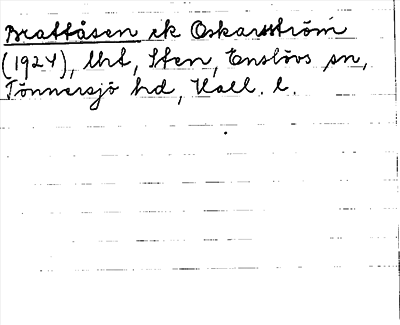 Brattåsen ik Oskarström
(1924), Urt, Sten, Enslövs sn,
Tönnersjö hd, Hall. l.